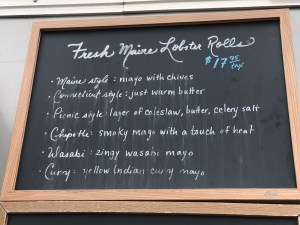 Fresh Maine Lobster Rolls
$17.95
• Maine style: mayo with chives
• Connecticut style: just warm butter
• Picnic style: layer of coleslaw, butter, celery salt
• Chipotle: smoky mayo with a touch of heat
• Wasabi: zingy wasabi mayo
• Curry: yellow Indian curry mayo